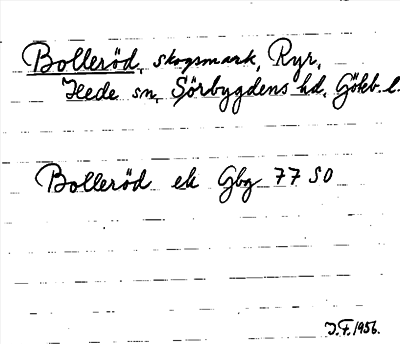 Bolleröd, skogsmark, Ryr,
Hede sn, Sörbygdens hd, Göteb. l.
Bolleröd ek Gbg 77 SO
J.F. 1956.